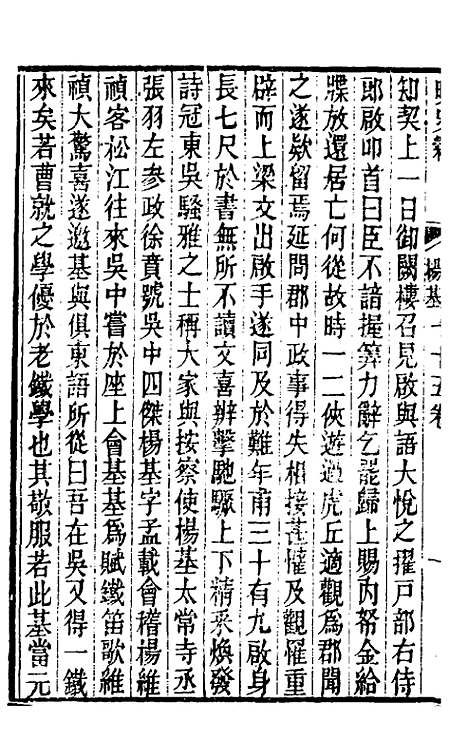 楊基 十五卷
知契上一日御闕樓召見啟與語大悅之擢戶部右侍
郎啟叩首曰臣不諳握算力辭乞罷歸上賜內帑金給
牒放還居亡何從故時一二俠遊過虎丘適觀為郡聞
之遂欵留焉延問郡中政事得失相接甚懽及觀罹重
辟而上梁文出啟手遂同及於難年甫三十有九啟身
長七尺於書無所不讀文喜辨擊馳驟上下精采煥發
詩冠東吳騷雅之士稱大家與按察使楊基太常寺丞
張羽左參政徐賁號吳中四傑楊基字孟載會稽楊維
禎客松江往來吳中嘗於座上會基基為賦鐵笛歌維
禎大驚喜遂邀基與俱東語所從曰吾在吳又得一鐵
來矣若曹就之學優於老鐵學也其敬服若此基當元